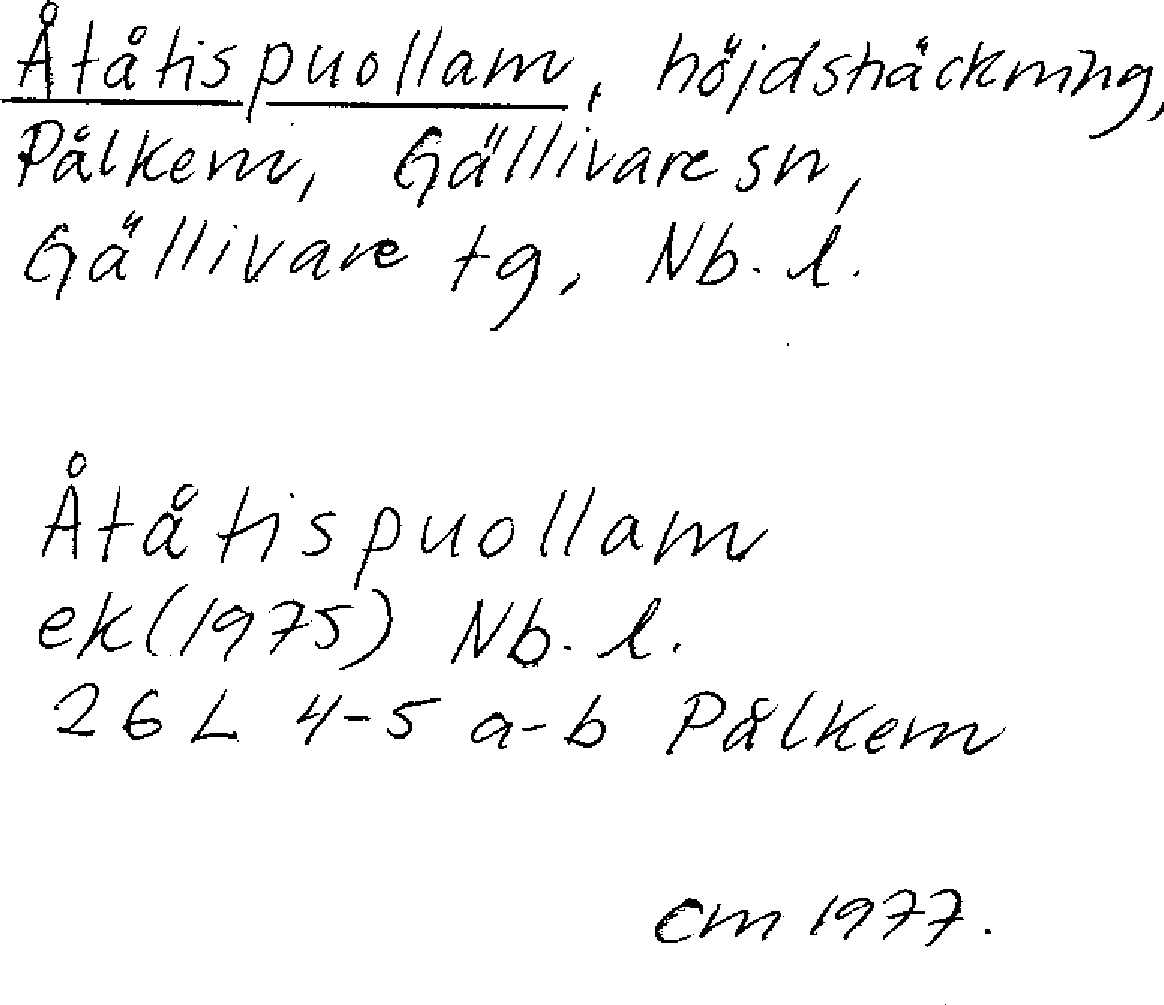 Åtåtispuollam, höjdsträckning,
Pålkem, Gällivare sn,
Gällivare tg, Nb. l.
Åtåtispuollam
ek(1975) Nb. l.
26 L 4-5 a-b Pålkem
CM 1977.